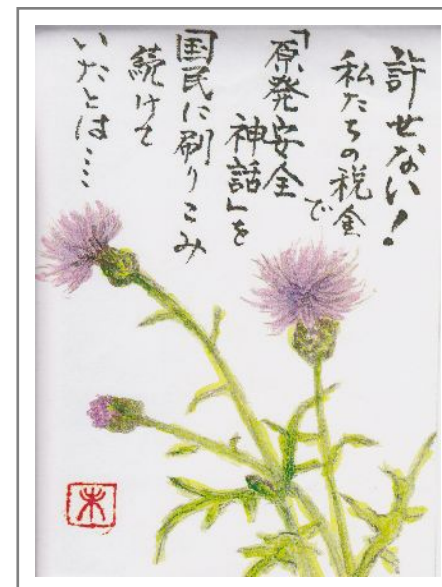 許せない!
私たちの税金で
「原発安全
神話」を
国民に刷りこみ
続けて
いたとは・・・・